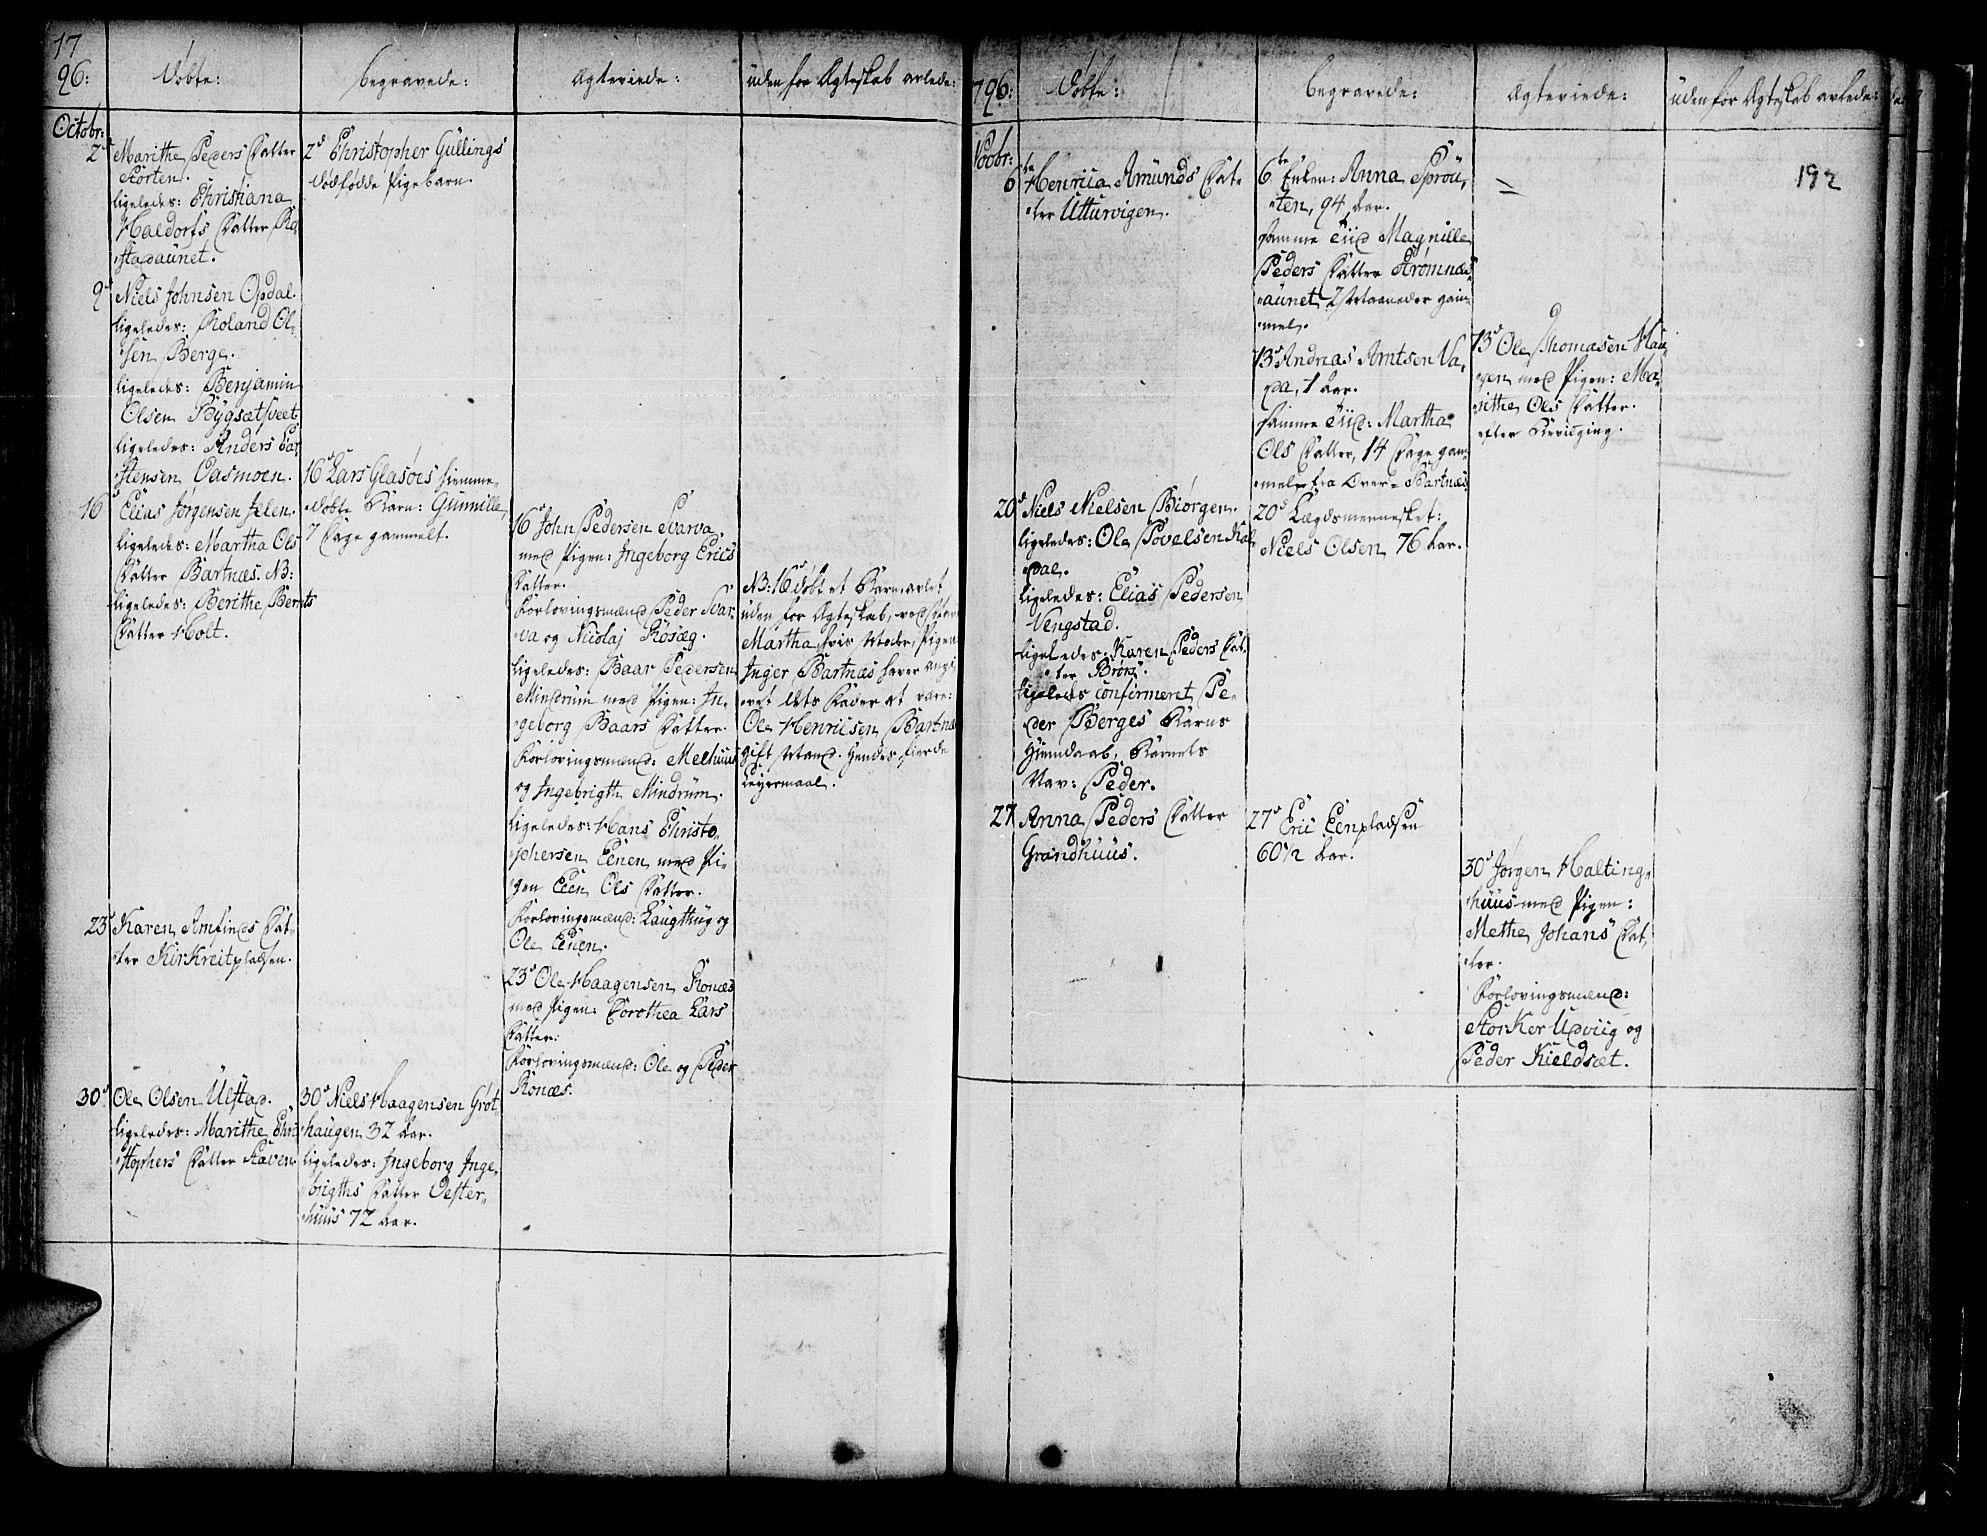 17
96:
Døbte:
begravede:
Ægteviede:
uden for Ægteskab avlede:
Octobr:
2d Marithe Peders Datter
Størten.
ligeledes: Christiana
Haldorss Datter Ro„
„stadaunet.
9d Niels Johnsen Opdal.
ligeledes: Roland Ol„
„sen Berge.
ligeledes: Benjamin
Olsen Bygsætsveet.
ligeledes: Anders Car„
„stensen Oasmoen.
16d Elias Jørgensen Jelen.
ligeledes: Martha Ols
Datter Bartnæs. NB:
ligeledes: Berithe Bernts
Datter Holt.
23d Karen Arnfinds Dat„
„ter Kirkreitpladsen.
30d Ole Olsen Ulstad.
ligeledes: Marithe Chri„
„stophers Datter Staven
2d Christopher Gullings
dødfødde Pigebarn.
16d Lars Glasøes hiemme„
„døbte Barn: Gunnille,
7 Dage gammelt.
30d Niels Haagensen Grøt„
„haugen 32 Aar.
ligeledes: Ingeborg Inge„
„brigths Datter Vester„
„huus 72 Aar.
16d John Pedersen Svarva
med Pigen: Ingeborg Erics
Datter.
Forlovingsmænd Peder Svar„
„va og Nicolaj Rosæg.
ligeledes: Baar Pedersen
Mindrum med Pigen: In„
„geborg Baars Datter.
Forlovingsmænd: Melhuus
og Ingebrigth Mindrum.
ligeledes: Hans Christo„
„phersen Eenen med Pi„
„gen Eeen Ols Datter.
Forlovingsmænd: Laugthug og
Ole Eenen.
23d Ole Haagensen Ronæs
med Pigen: Dorothea Lars
Datter:
Forlovingsmænd: Ole og Peder
Ronæs.
NB: 16d døbt et Barn avlet
uden for Ægteskab, ved
Martha, hvis Moder, Pigen
Inger Bartnæs haver angi„
„vet dets Fader at være:
Ole Henricsen Bartnæs
gift Mand. hendes fierde
Leyermaal.
1796:
Døbte:
begravede:
Ægteviede:
uden for Ægteskab avlede:
192
Novbr:
6te Henrica Amunds Dat„
„ter Utturvigen.
20d Niels Nielsen Biørgen.
ligeledes: Ole Povelsen Kal„
„dal.
ligeledes: Elias Pedersen
Vengstad.
ligeledes: Karen Peders Dat„
„ter Brørs.
ligeledes confirmert Pe„
„der Berges Barns
Hiemdaab, Barnets
Nav: Peder.
27 Anna Peders Datter
Grandhuus.
6te Enken: Anna Sprou„
„ten, 94 Aar.
samme Tiid Magnille
Peders Datter Strømnæs„
„aunet 2 Maaneder gam„
„mel.
13d Andreas Arntsen Va„
„da, 1 Aar.
samme Tiid: Martha
Ols Datter, 14 Dage gam„
„mel fra Over-Bartnæs.
20d Lægdsmennesket:
Niels Olsen 76 Aar.
27d Eric Eenpladsen
60 1/2 Aar.
13d Ole Thomasen Hau„
„gen med Pigen: Ma„
„rithe Ols Datter.
efter Bevilging.
30d Jørgen Halting„
„huus med Pigen:
Methe Johans Dat„
„ter.
Forlovingsmænd:
Storker Udviig og
Peder Kieldsæt.